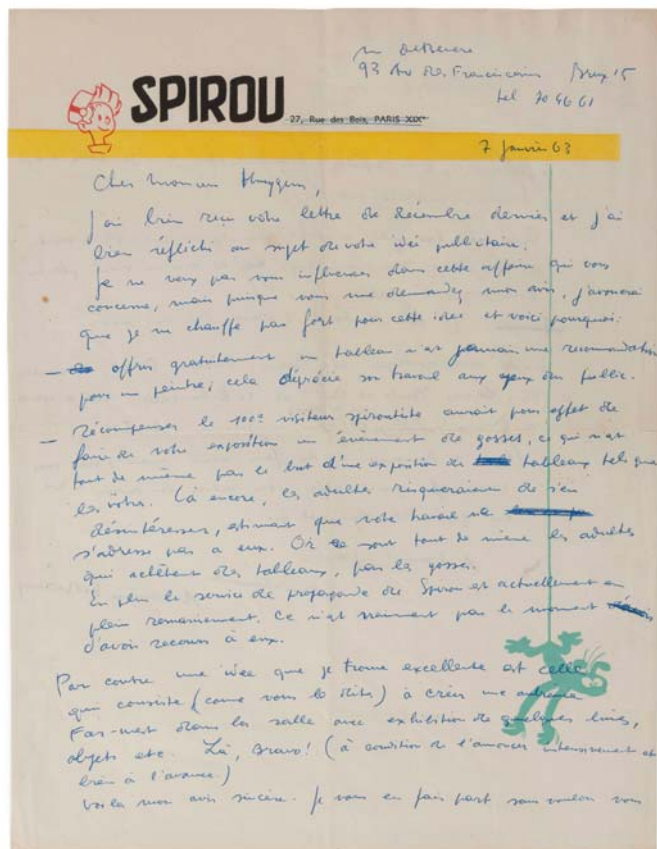 93 Av des Franciscains Brux 15
tel 70 46 61
SPIROU
27, Rue des Bois, PARIS XIXe
7 Janvier 63
Cher Monsieur Huygens,
J'ai bien reçu votre lettre de décembre dernier et j'ai
bien réfléchi au sujet de votre idée publicitaire.
Je ne veux pas vous influencer dans cette affaire qui vous
concerne, mais puisque vous me demandez mon avis, j'avouerai
que je ne chauffe pas fort pour cette idée et voici pourquoi:
— offrir gratuitement un tableau n'est jamais une recommandation
pour un peintre, cela déprécie son travail aux yeux du public.
— Récompenser le 100e visiteur spiroutiste aurait pour effet de
faire de votre exposition un évènement de gosses, ce qui n'est
tout de même pas le but d'une exposition de tableaux tels que
les vôtres. Là encore, les adultes risqueraient de s'en
désintéresser, estimant que votre travail ne
s'adresse pas à eux. Or ce sont tout de même les adultes
qui achètent des tableaux, pas les gosses.
En plus le service de propagande de Spirou est actuellement en
plein remaniement. Ce n'est vraiment pas le moment
d'avoir recours à eux.
Par contre une idée que je trouve excellente est celle
qui consiste (comme vous le dites) à créer une ambiance
Far-West dans la salle avec exhibition de quelques livres,
objets etc. Là, Bravo! (à condition de l'annoncer intensivement et
bien à l'avance)
Voilà mon avis sincère. Je vous en fais part sans vouloir vous